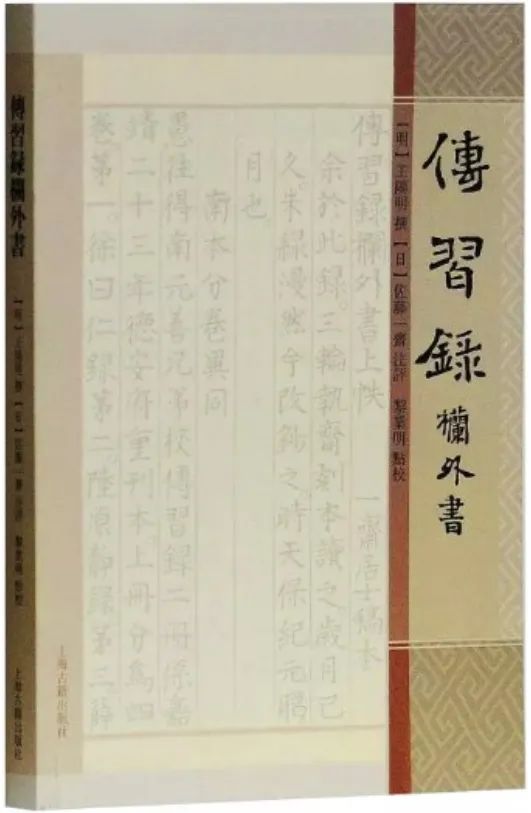 傳習錄
欄外書
【明】王陽明 撰 【日】佐藤一齋 注評 黎業明 點校
傳習録欄外書上帙 一齋居士稿本
余於此録。三輪執齋刻本讀之。歲月已
久。朱緑漫然今改鈔之。時天保紀元陽
月也
南本分卷異同
愚往得南元善兄弟校傳習録二冊係嘉
靖二十三年德安府重刊本上冊分為四
卷第一。徐曰仁録第二。陸原靜録第三。薛
上海古籍出版社
傳習録欄外書
【明】王陽明 撰 【日】佐藤一齋 注評 黎業明 點校
上海古籍出版社